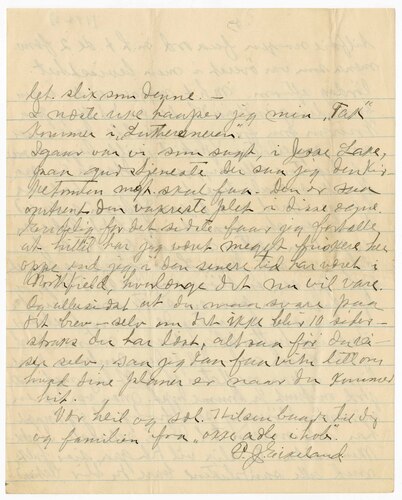 let. slix som denne. —
I næste uke haaper jeg min "Tak"
kommer i "Lutheraneren".
Igaar var vi som sagt, i Jesse Lake,
paa gudstjeneste der saa jeg den
skal faa. Den er saa
omtrent den vakreste plet i disse egne.
for det sidste faar jeg fortælle
at hittil har jeg været meget her
oppe end jeg i den senere tid har været i
Northfield, hvorlenge det nu vil vare.
Og allesidst at du maa svare paa
det brev — selv om det ikke blir 10 sider —
straks du har læst, altsaa før du
selv, saa jeg kan faa vite litt om
hvad dine planer er naar du kommer
hit.
Vær heil og sæl. Hilsen baade til dig
og familien fra "oss alle ihob".
P. J.